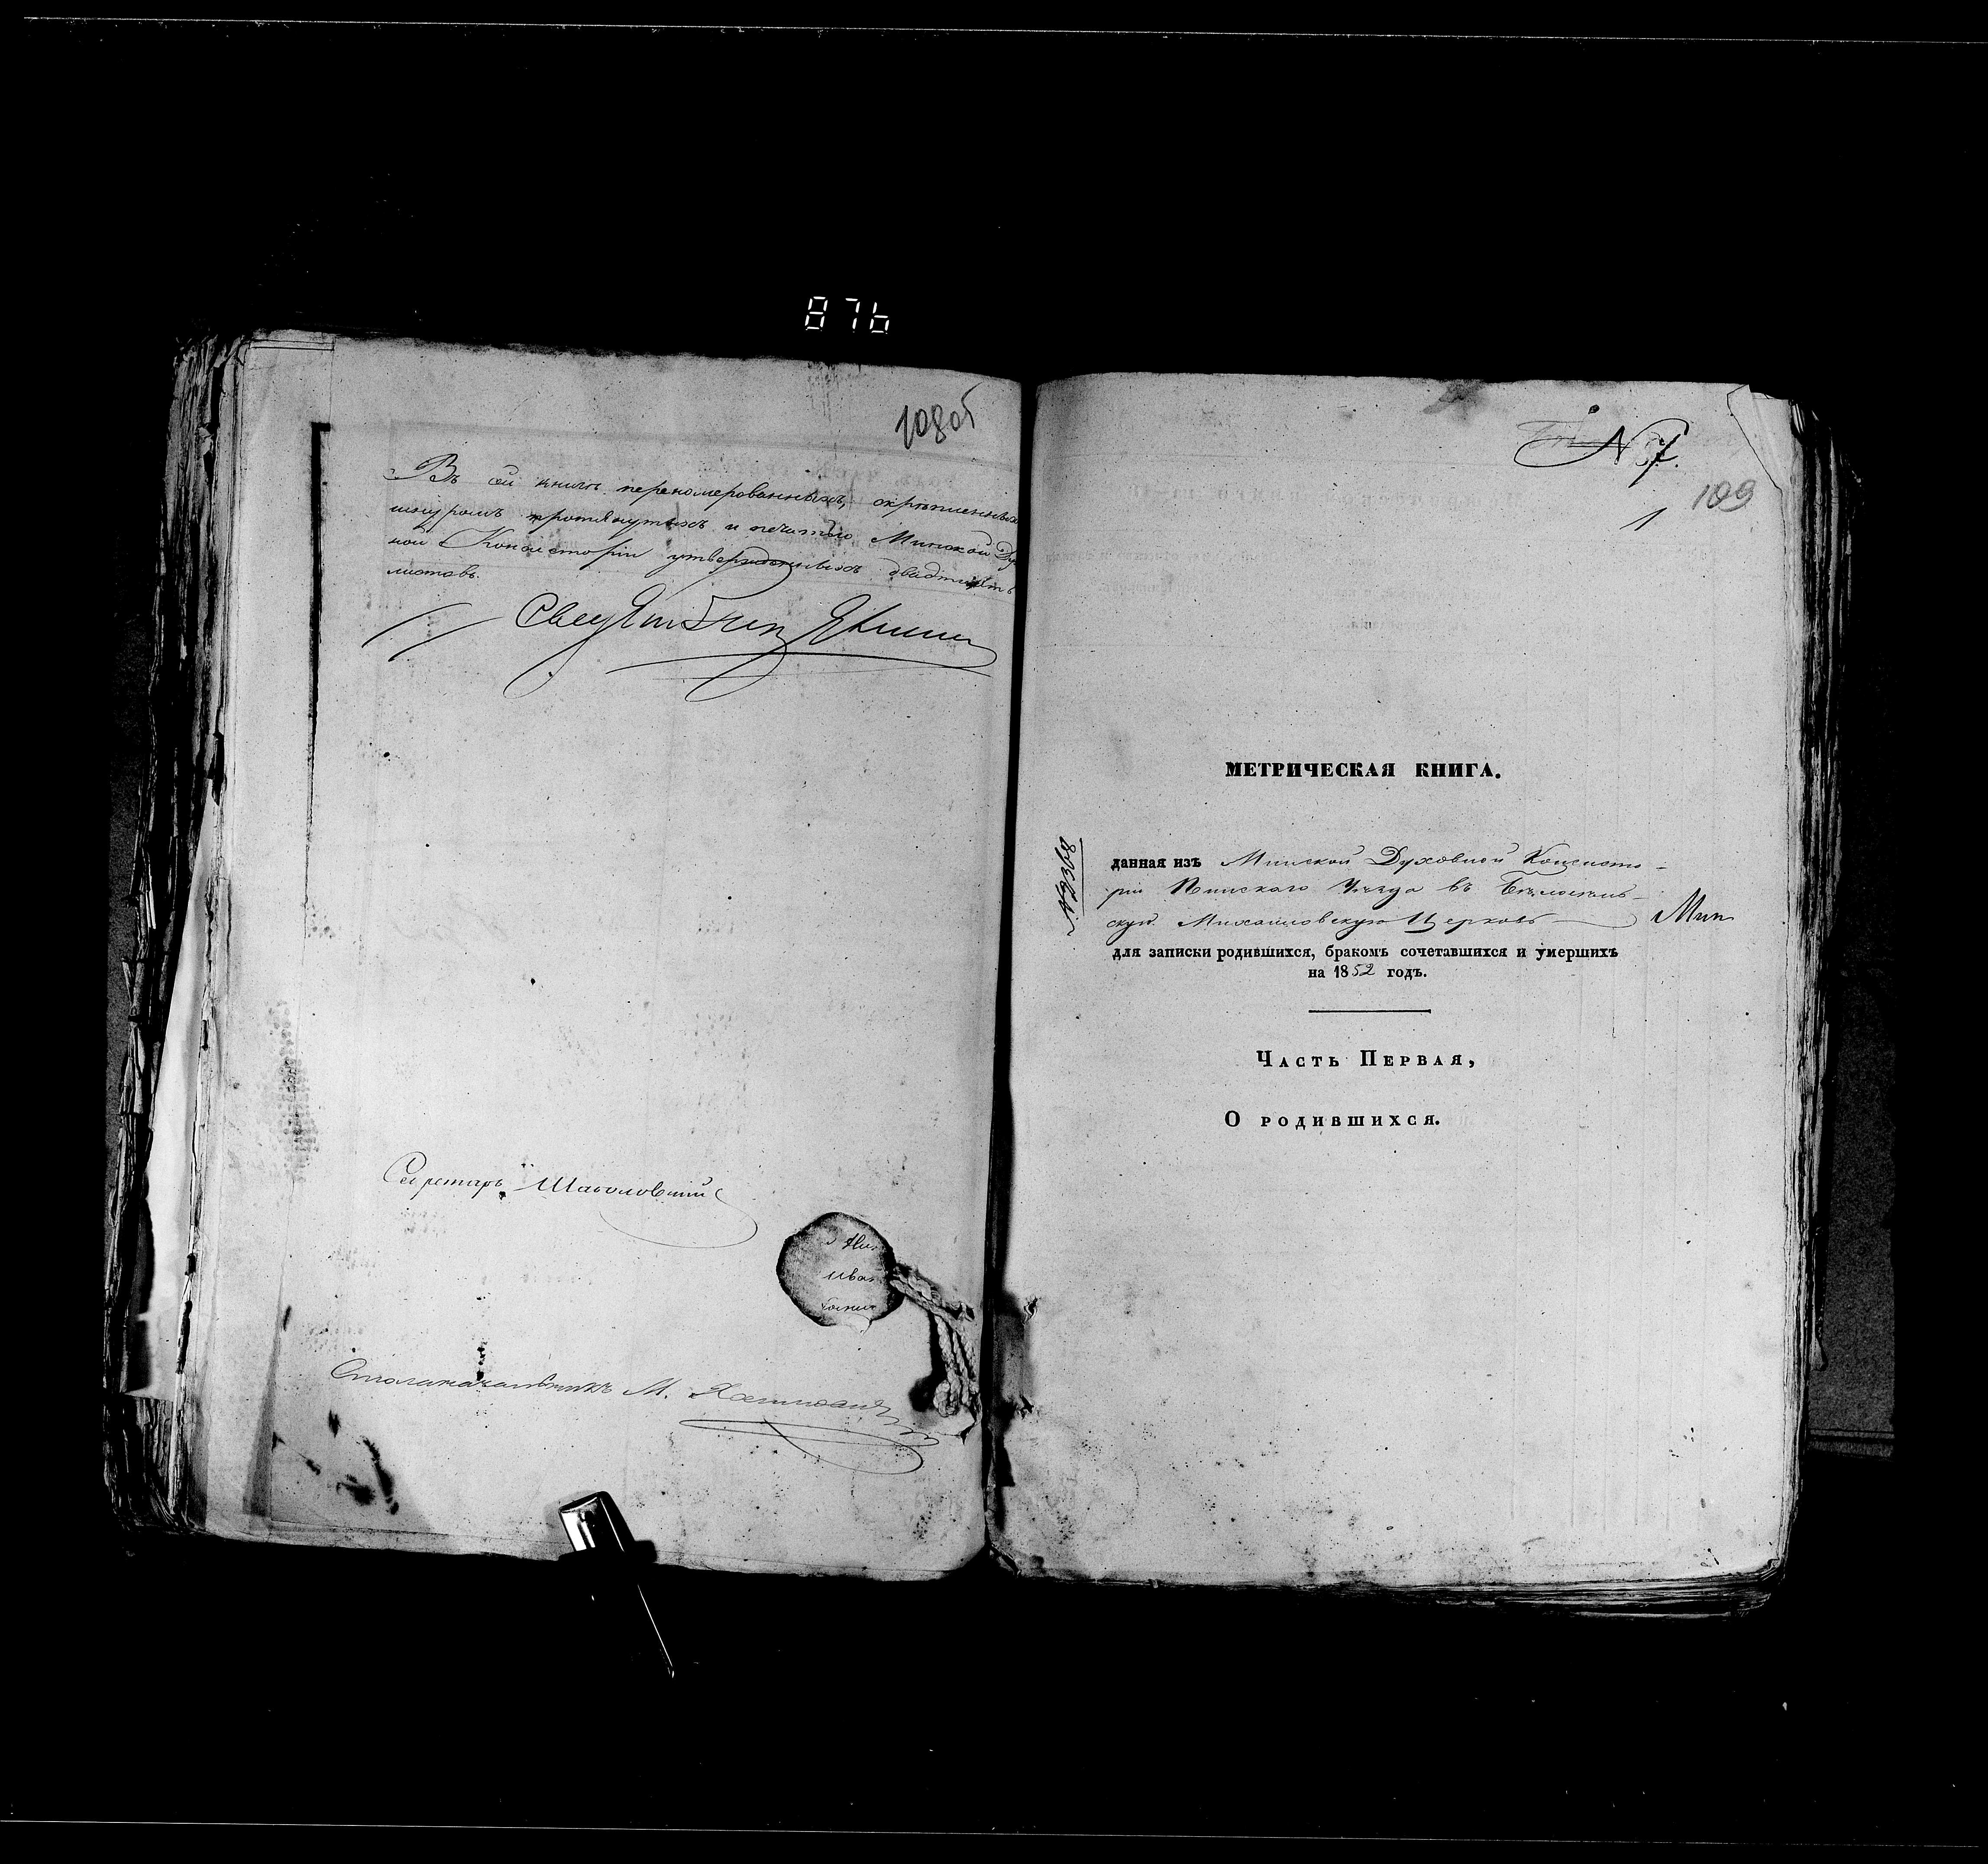 876
108об
Въ сей книгѣ перенумерованныхъ, скрѣпленныхъ
шнуромъ протянутыхъ и печатью Минской Ду
ной Консисторіи утвержденныхъ двадцать
листовъ.
Секретарь
Столоначальникъ М.
№ 7.
109
1
МЕТРИЧЕСКАЯ КНИГА.
№2368
данная изъ Минской Духовной Консисто-
ріи Пинскаго Уѣзда въ
скую Михайловскую Церковь Мин
для записки родившихся, бракомъ сочетавшихся и умершихъ
на 1852 годъ.
Часть Первая,
О родившихся.